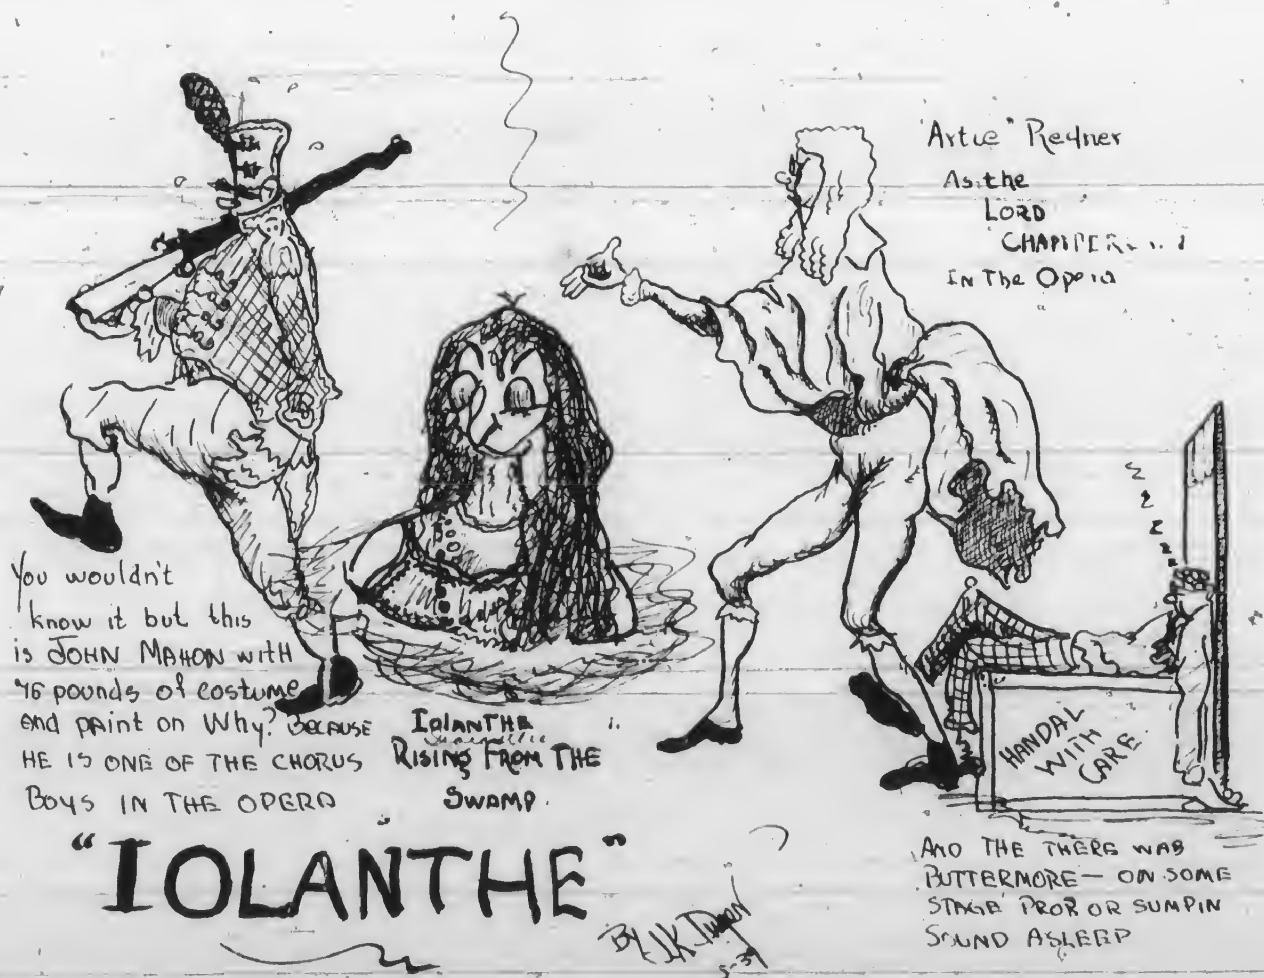 "Artie" Redner
As the
LORD
In The Opera
You wouldn't
know it but this
is JOHN MAHON with
pounds of costume
and paint on Why? BECAUSE
HE IS ONE OF THE CHORUS
BOYS IN THE OPERA
IOLANTHE
RISING FROM THE
SWAMP.
"IOLANTHE"
By J.K.
5-39
Z Z Z Z
HANDAL
WITH
CARE
AND THE THERE WAS
BUTTERMORE — ON SOME
STAGE PROP OR SUMPIN
SOUND ASLEEP